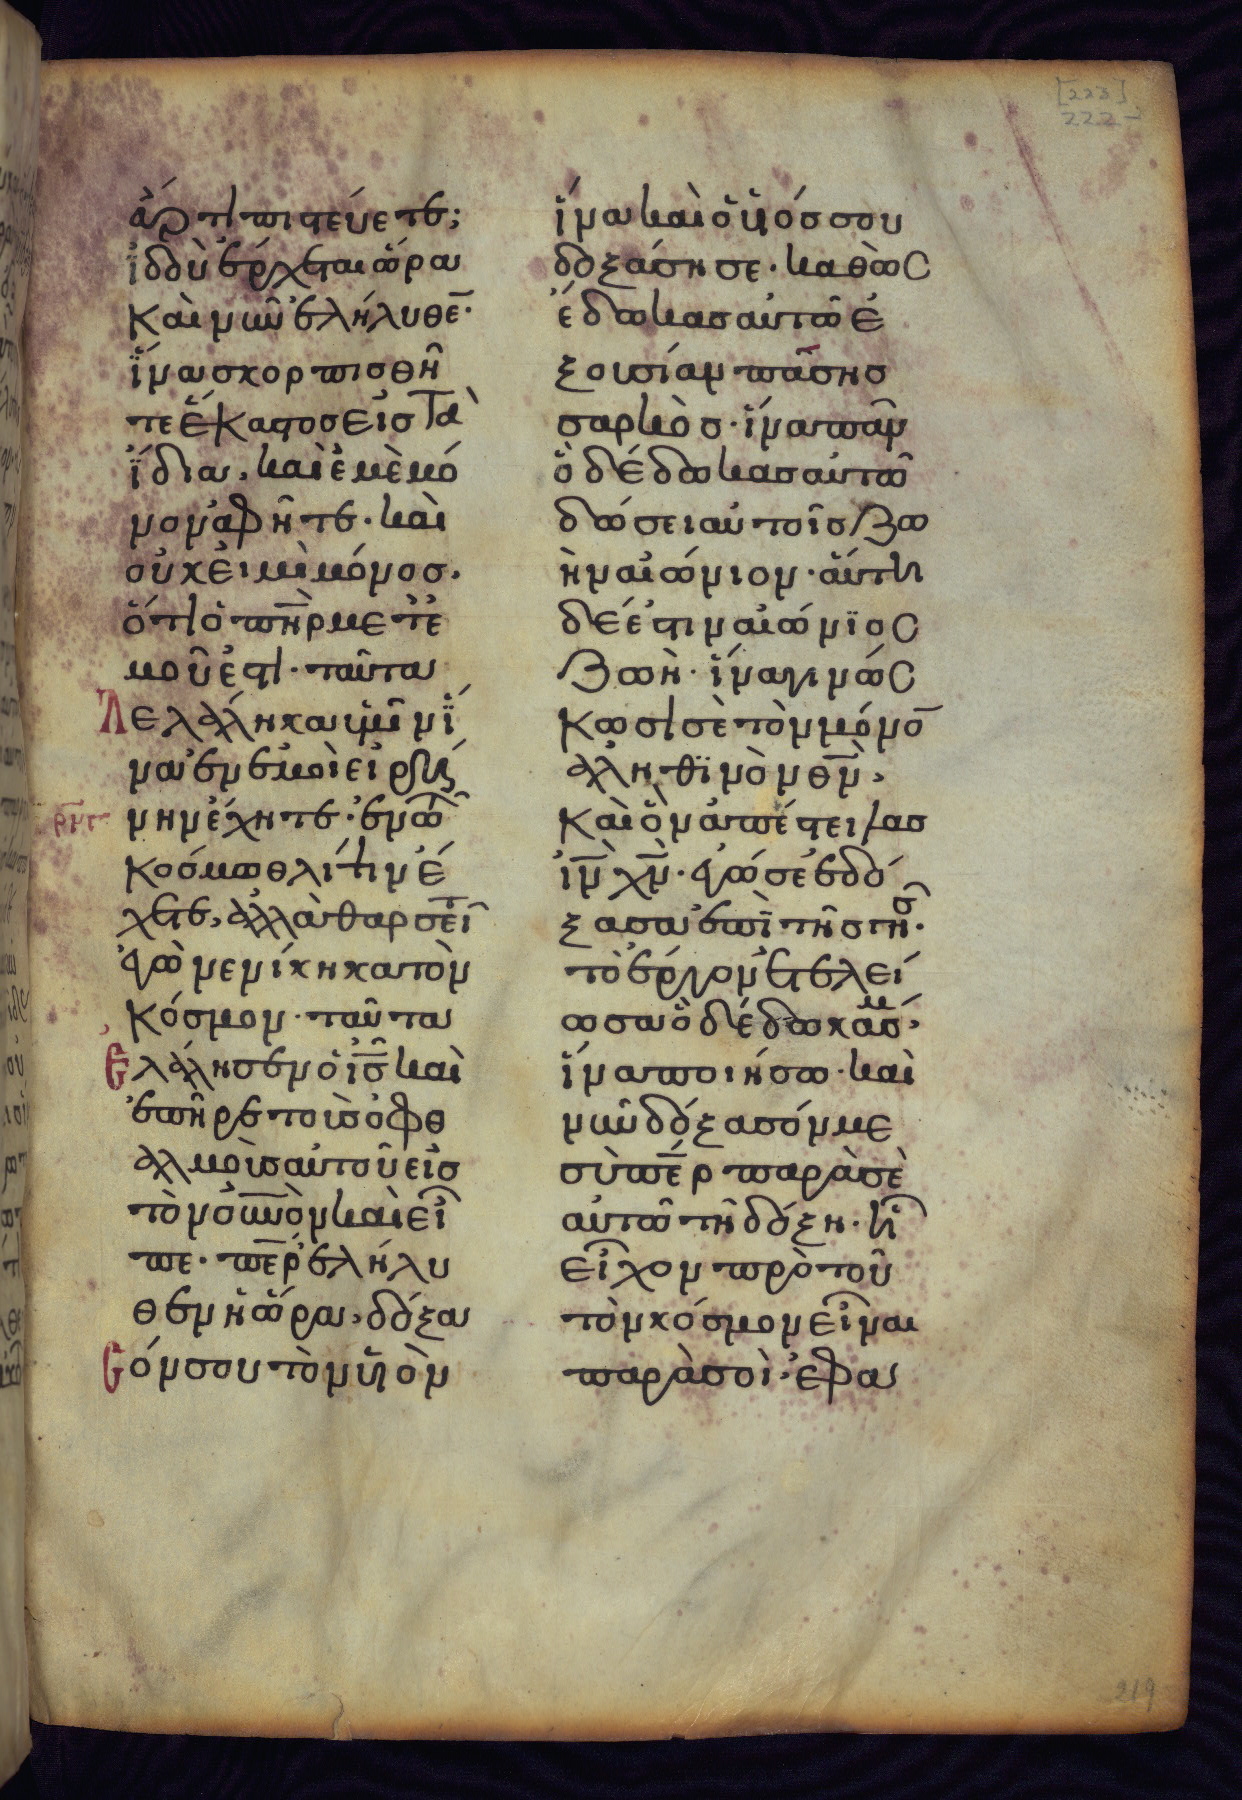 [223]
222
ἄρτι πιστεύετε;
ἰδοὺ ἔρχεται ὥρα
καὶ νῦν ἐλήλυθε̄·
ἵνα σκορπισθῆ
τε ἕκαστος εἰς τὰ
ἴδια, καὶ ἐμὲ μό
νον ἀφῆτε· καὶ
οὐκ εἰμὶ μόνος.
ὅτι ὁ π̅η̅ρ μετ' ἐ
μοῦ ἐστι· ταῦτα
λελάληκα ὑμῖν ἵ
να ἐν ἐμοὶ εἰρή
ρμς
νην ἔχητε· ἐν τῶ
κόσμω θλίψιν ἕ
χετε, ἀλλὰ θαρσεῖτ
ἐγὼ νενίκηκα τὸν
κόσμον· ταῦτα
ἐλάλησεν ὁ ι̅ς̅ καὶ
ἐπῆρε τοὺς ὀφθ
αλμοὺς αὐτοῦ εἰς
τὸν ο̅υ̅νὸν καὶ εἶ
πε· π̅ε̅ρ ἐλήλυ
θεν ἡ ὥρα, δόξα
σόν σου τὸν υ̅ὸν
ἵνα καὶ ὁ υ̅ς σου
δοξάση σε· καθὼς
ἔδωκας αὐτῶ ἐ
ξουσίαν πάσης
σαρκὸς· ἵνα πᾶν
ὃ δέδωκας αὐτῶ
δώσει αὐτοῖς ζω
ὴν αἰώνιον· αὕτη
δέ ἐστιν αἰώνϊος
ζωὴ· ἵνα γινώς
κωσι σὲ τὸν μόνο̄
ἀληθϊνὸν θ̅ν̅,
καὶ ὃν ἀπέστειλας
ι̅ν̅ χ̅ν̅· ἐγώ σε ἐδό
ξασα ἐπῒ τῆς γῆς·
τὸ ἔργον ἐτελεί
ωσα ὃ δέδωκάς μ,
ἵνα ποιήσω· καὶ
νῦν δόξασόν με
σὺ π̅ε̅ρ παρὰ σε
αυτῶ τῆ δόξη· ἧ
εἶχον πρὸ τοῦ
τὸν κόσμον εἶναι
παρὰ σοὶ· ἐφα
219